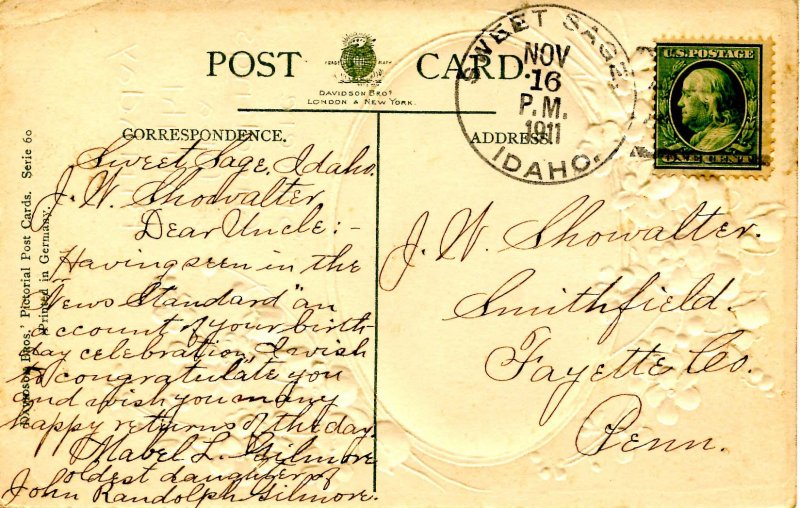 POST CARD.
DAVIDSON BROS
LONDON & NEW YORK.
SWEET SAGE,
NOV
16
P.M.
1911
IDAHO.
U.S. POSTAGE
ONE CENT
CORRESPONDENCE.
ADDRESS
Davidson Bros.' Pictorial Post Cards. Serie 60
Printed in Germany.
Sweet Sage, Idaho.
J. W. Showalter
Dear Uncle:-
Having seen in the
"News Standard" an
account of your birth-
day celebration, I wish
to congratulate you
and wish you many
happy returns of the day.
Mabel L. Gilmore
oldest daughter of
John Randolph Gilmore.
J. W. Showalter.
Smithfield.
Fayette Co.
Penn.